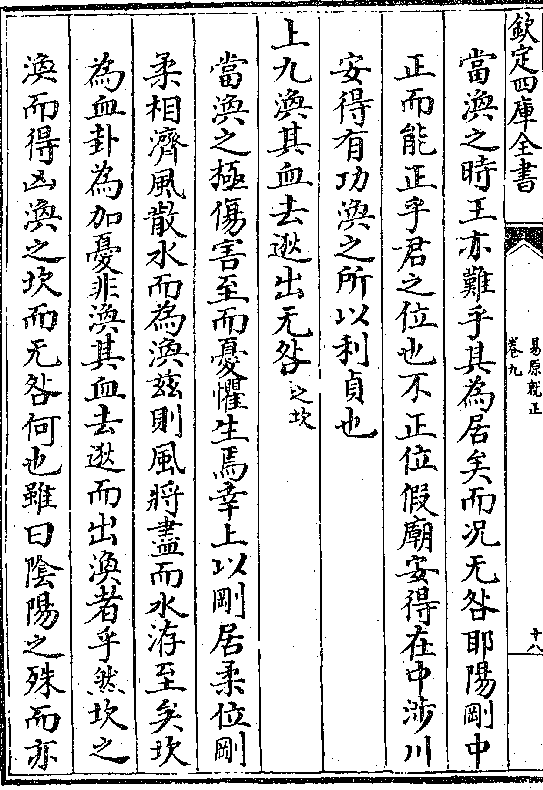 欽定四庫全書
易原就正
卷九
十八
當渙之時王亦難乎其為居矣而況无咎耶陽剛中
正而能正乎君之位也不正位假廟安得在中渉川
安得有功渙之所以利貞也
上九渙其血去逖出无咎之坎
當渙之極傷害至而憂懼生焉幸上以剛居柔位剛
柔相濟風散水而為渙兹則風將盡而水洊至矣坎
為血卦為加憂非渙其血去逖而出渙者乎然坎之
渙而得凶渙之坎而无咎何也雖曰陰陽之殊而亦